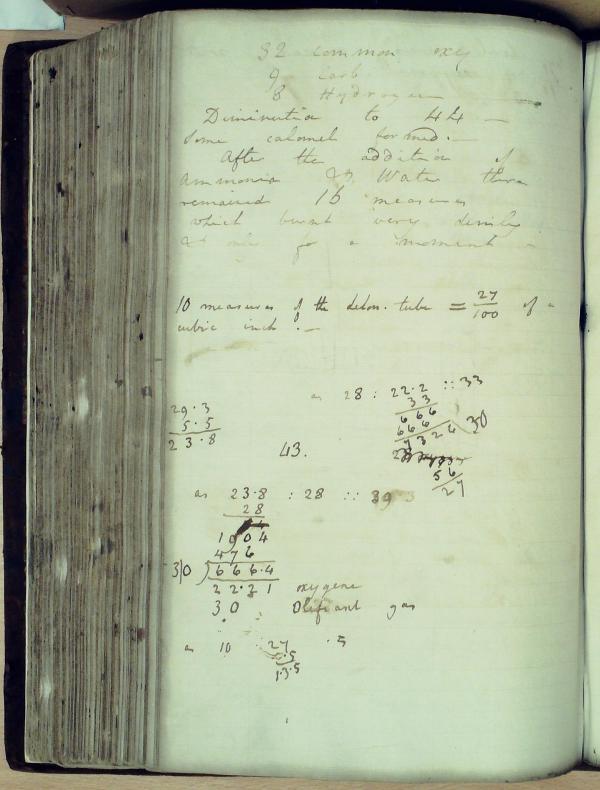 32 common oxy
9 Carb
8 Hydrogen
Diminution to 44 —
Some calomel formed. —
After the addition of
Ammonia & Water there
remained 16 measures
which burnt very
& only for a moment
10 measures of the deton. tube = 27/100 of a
cubic inch. —
as 28 : 22.2 :: 33
33
666
666
7326
30
56
27
29.3
5.5
23.8
43.
as 23.8 : 28 :: 
28
1904
476
30) 666.4
22.21 oxygene
30 Olefiant gas
as 10 27 .5
.5
13.5